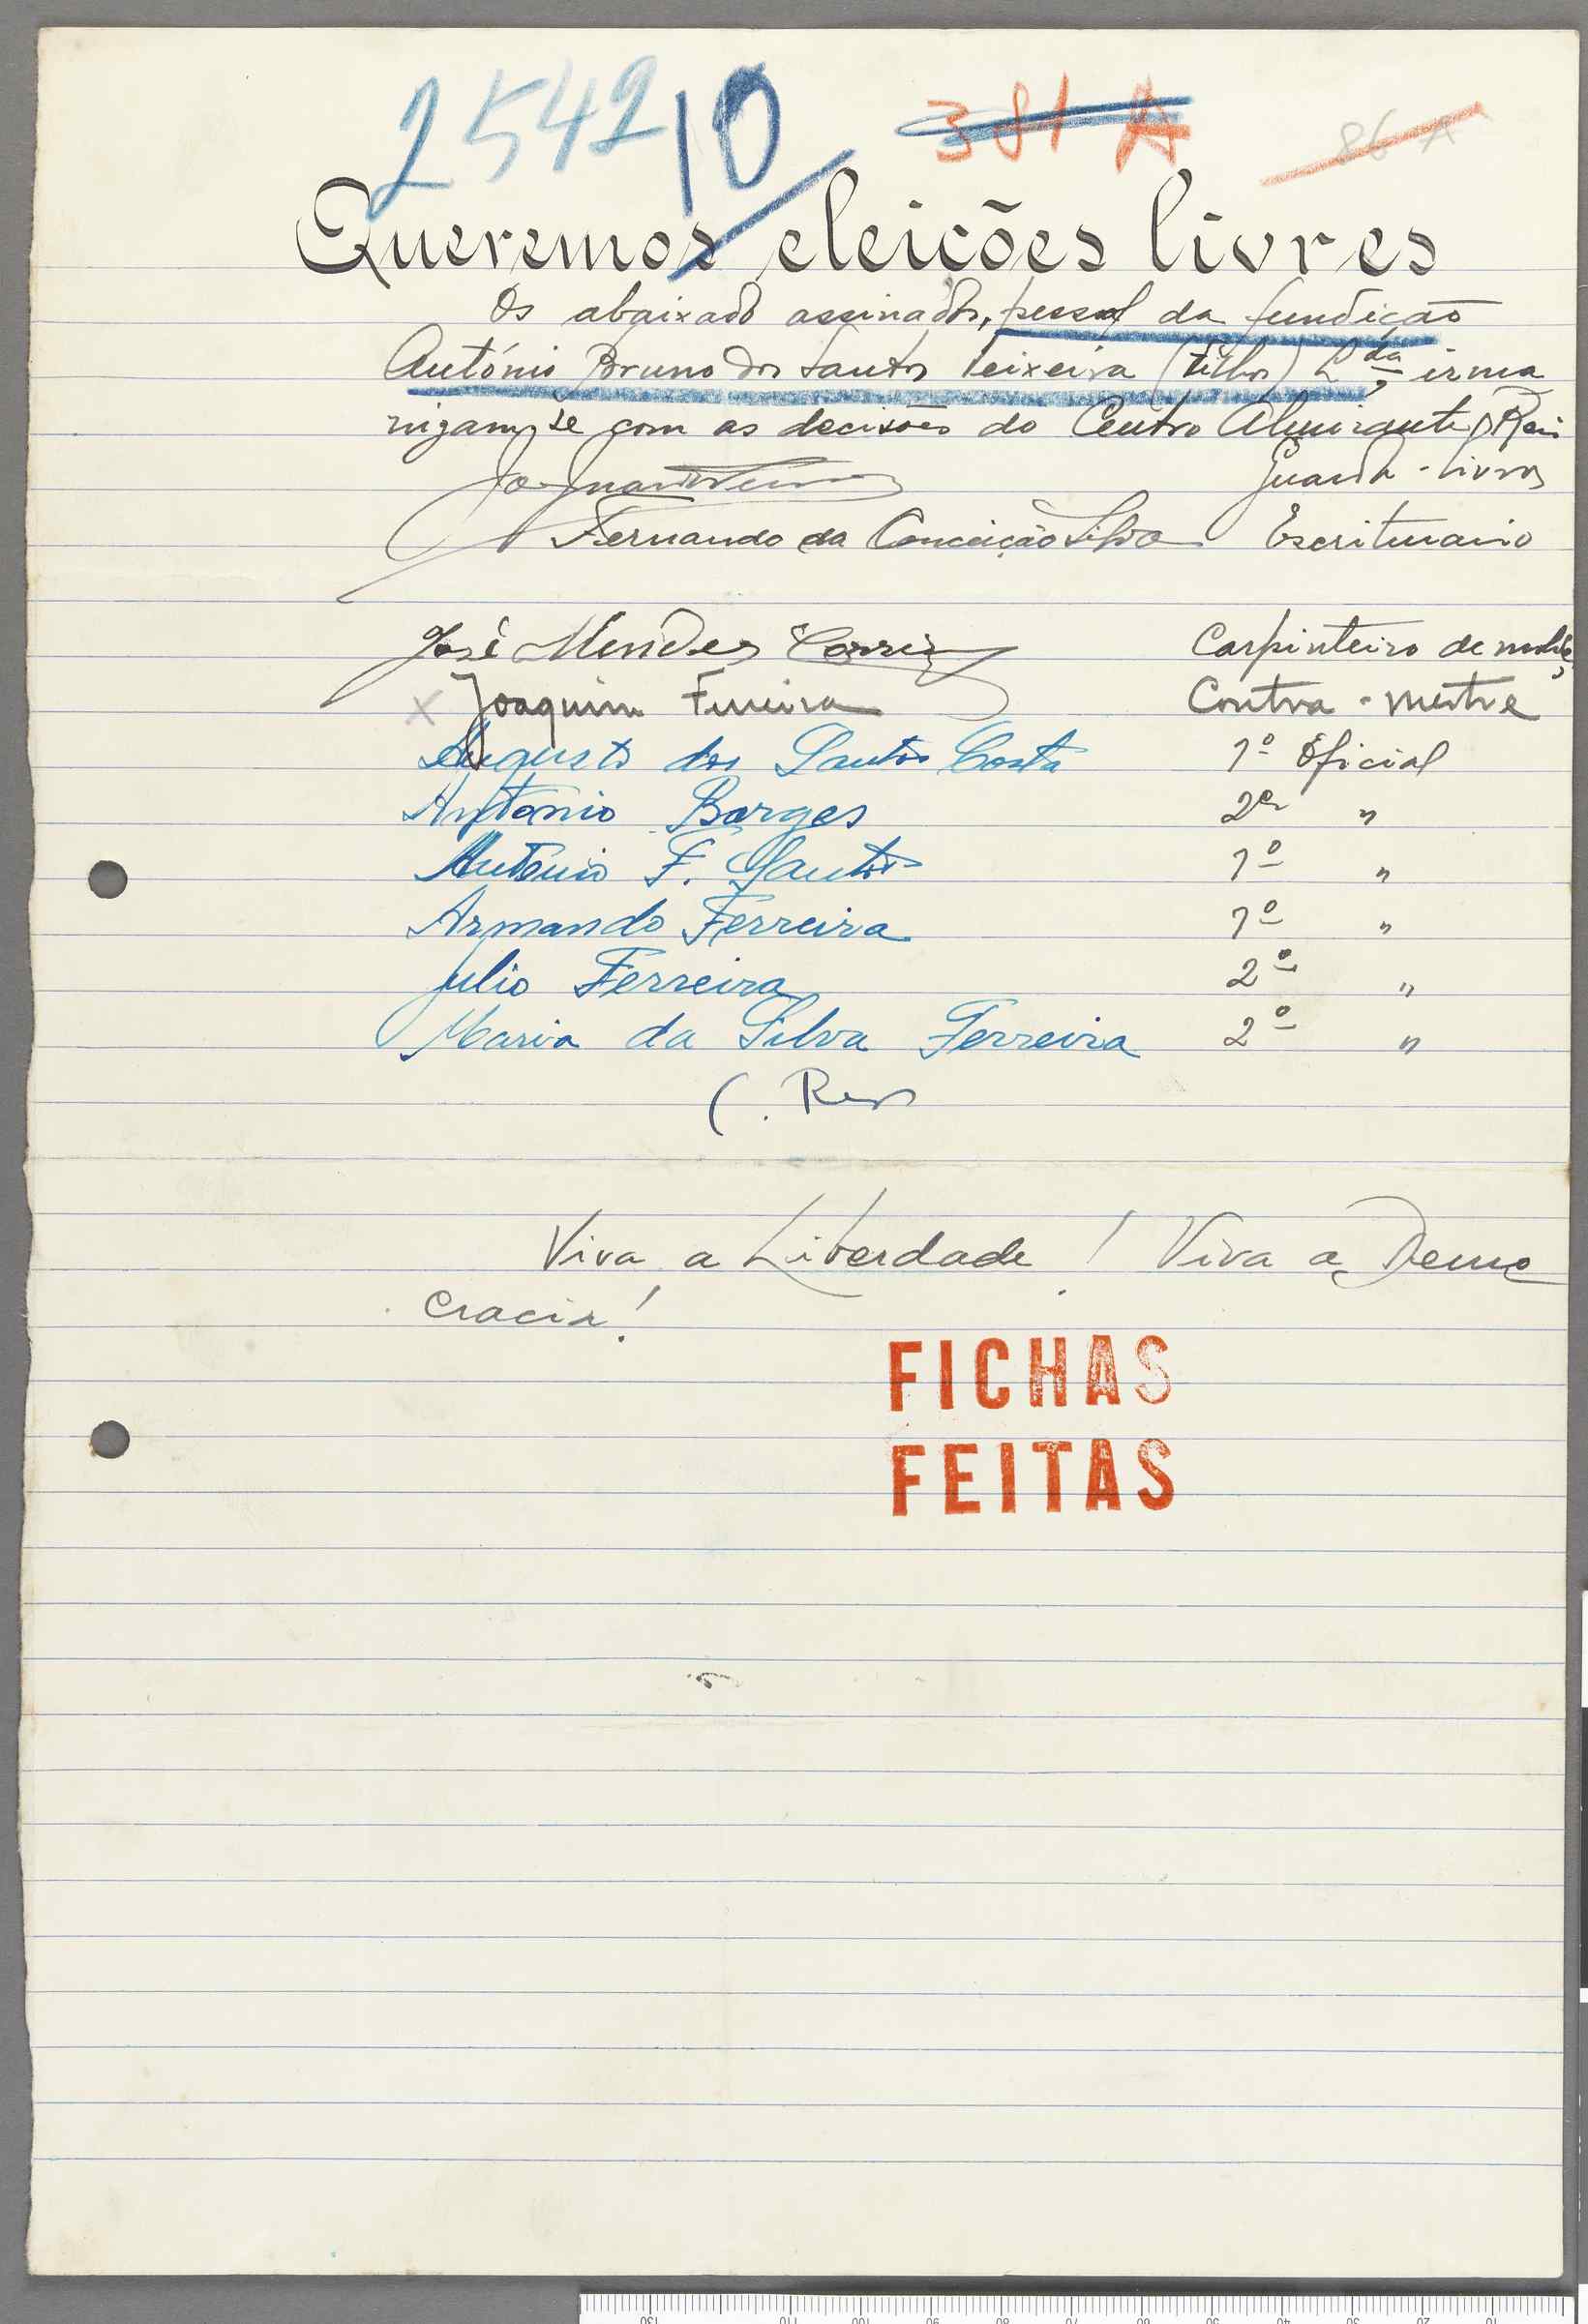 2542 10 381 A 86 A
Queremos eleições livres
Os abaixado assinados, pessoal da fundição
António Bruno dos Santos Teixeira (Filhos) Lda, irma
nizam-se com as decisões do Centro Almirante Reis
Guarda-livros
Fernando da Conceição Silva Escriturario
José Mendes Correia Carpinteiro de moldes
x Joaquim Ferreira Contra-mestre
Augusto dos Santos Costa 1º Oficial
Antonio Borges 2º "
Antonio F. Santos 1º "
Armando Ferreira 1º "
Julio Ferreira 2º "
Maria da Silva Ferreira 2º "
Viva a Liberdade! Viva a Demo
cracia!
FICHAS
FEITAS